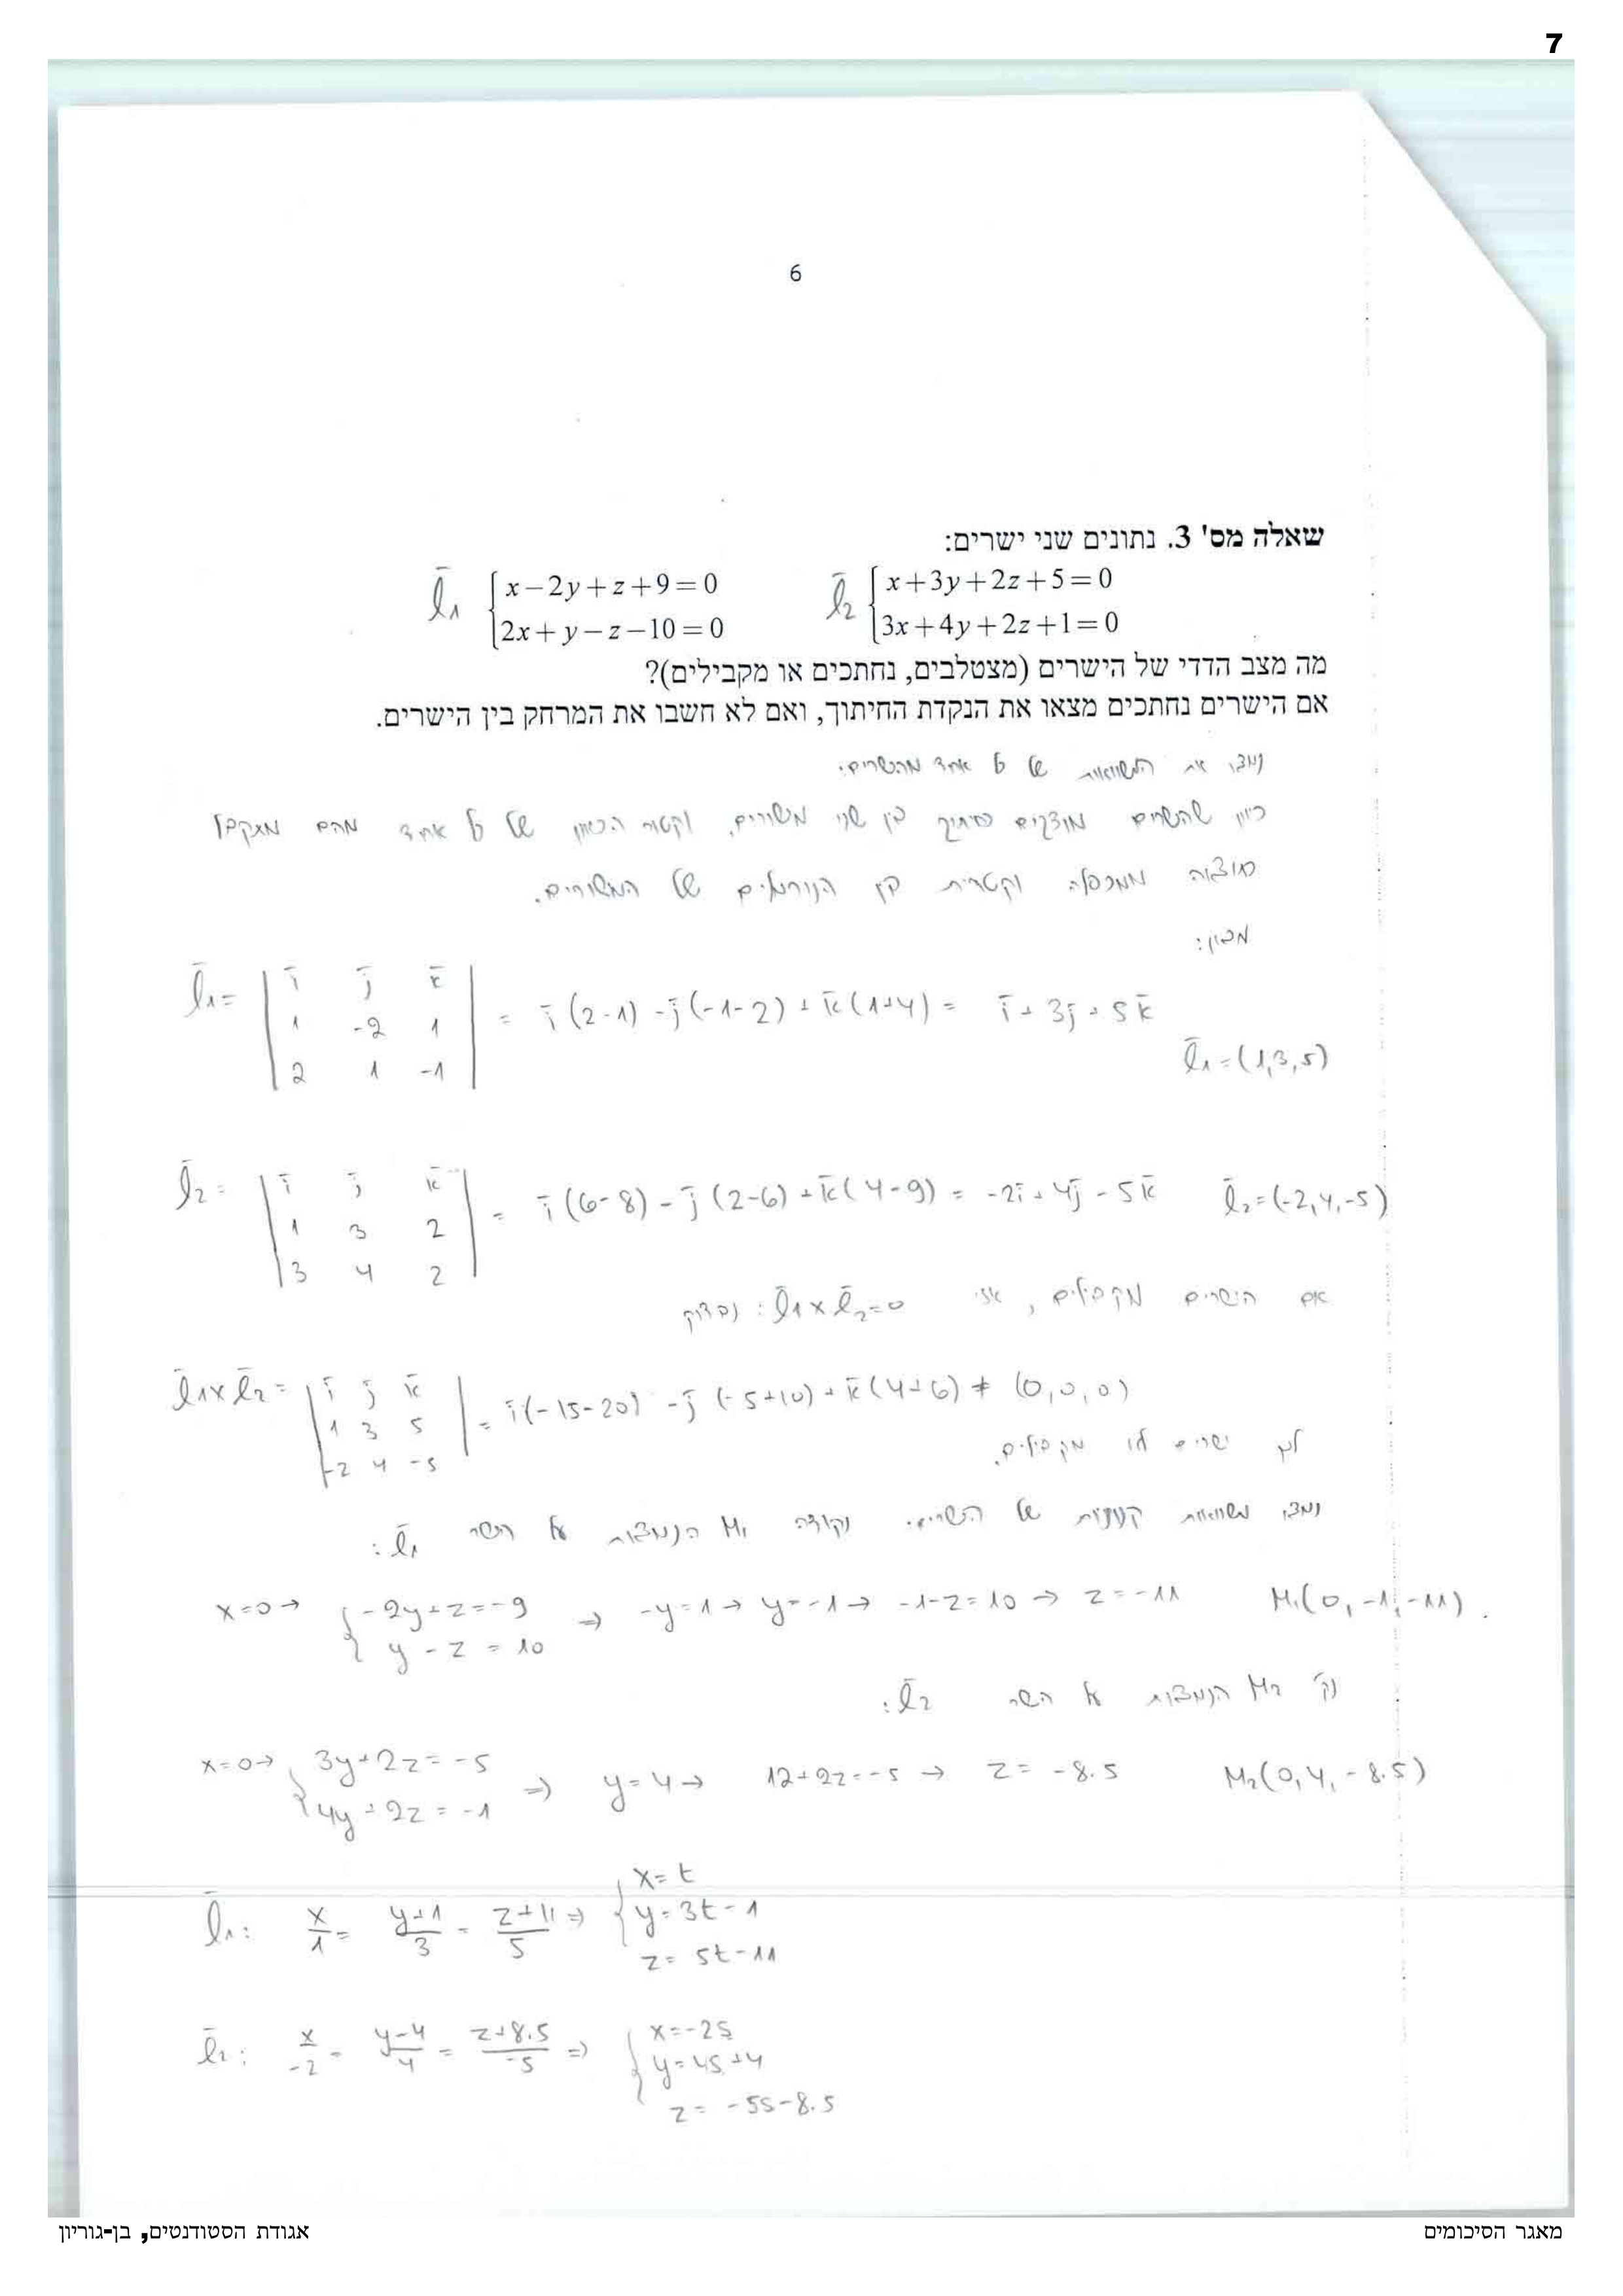 7
6
שאלה מס' 3. נתונים שני ישרים:
l̄₁ { x−2y+z+9=0    l̄₂ { x+3y+2z+5=0
2x+y−z−10=0    3x+4y+2z+1=0
מה מצב הדדי של הישרים (מצטלבים, נחתכים או מקבילים)?
אם הישרים נחתכים מצאו את הנקדת החיתוך, ואם לא חשבו את המרחק בין הישרים.
נמצא את המשוואות של כל אחד מהישרים.
כיוון שהישרים מוצגים כחיתוך בין שני מישורים, וקטור הכיוון של כל אחד מהם מתקבל
כתוצאה ממכפלה וקטרית בין הנורמלים של המישורים.
מכאן:
l̄₁ = | ī j̄ k̄ ; 1 -2 1 ; 2 1 -1 | = ī(2-1) - j̄(-1-2) + k̄(1+4) = ī + 3j̄ + 5k̄
l̄₁=(1,3,5)
l̄₂ = | ī j̄ k̄ ; 1 3 2 ; 3 4 2 | = ī(6-8) - j̄(2-6) + k̄(4-9) = -2ī + 4j̄ - 5k̄    l̄₂=(-2,4,-5)
אם הישרים מקבילים, אזי l̄₁×l̄₂=0 : נבדוק
l̄₁×l̄₂ = | ī j̄ k̄ ; 1 3 5 ; -2 4 -5 | = ī(-15-20) - j̄(-5+10) + k̄(4+6) ≠ (0,0,0)
לכן ישרים לא מקבילים.
נמצא משוואות קנוניות של הישרים. נקודה M₁ הנמצאת על הישר l̄₁ :
x=0 → { -2y+z=-9 ; y-z=10 ⇒ -y=1 → y=-1 → -1-z=10 → z=-11    M₁(0,-1,-11).
נק' M₂ הנמצאת על הישר l̄₂ :
x=0 → { 3y+2z=-5 ; 4y+2z=-1 ⇒ y=4 → 12+2z=-5 → z=-8.5    M₂(0,4,-8.5)
l̄₁: x/1 = (y+1)/3 = (z+11)/5 ⇒ { x=t ; y=3t-1 ; z=5t-11
l̄₂: x/-2 = (y-4)/4 = (z+8.5)/-5 ⇒ { x=-2s ; y=4s+4 ; z=-5s-8.5
מאגר הסיכומים
אגודת הסטודנטים, בן-גוריון